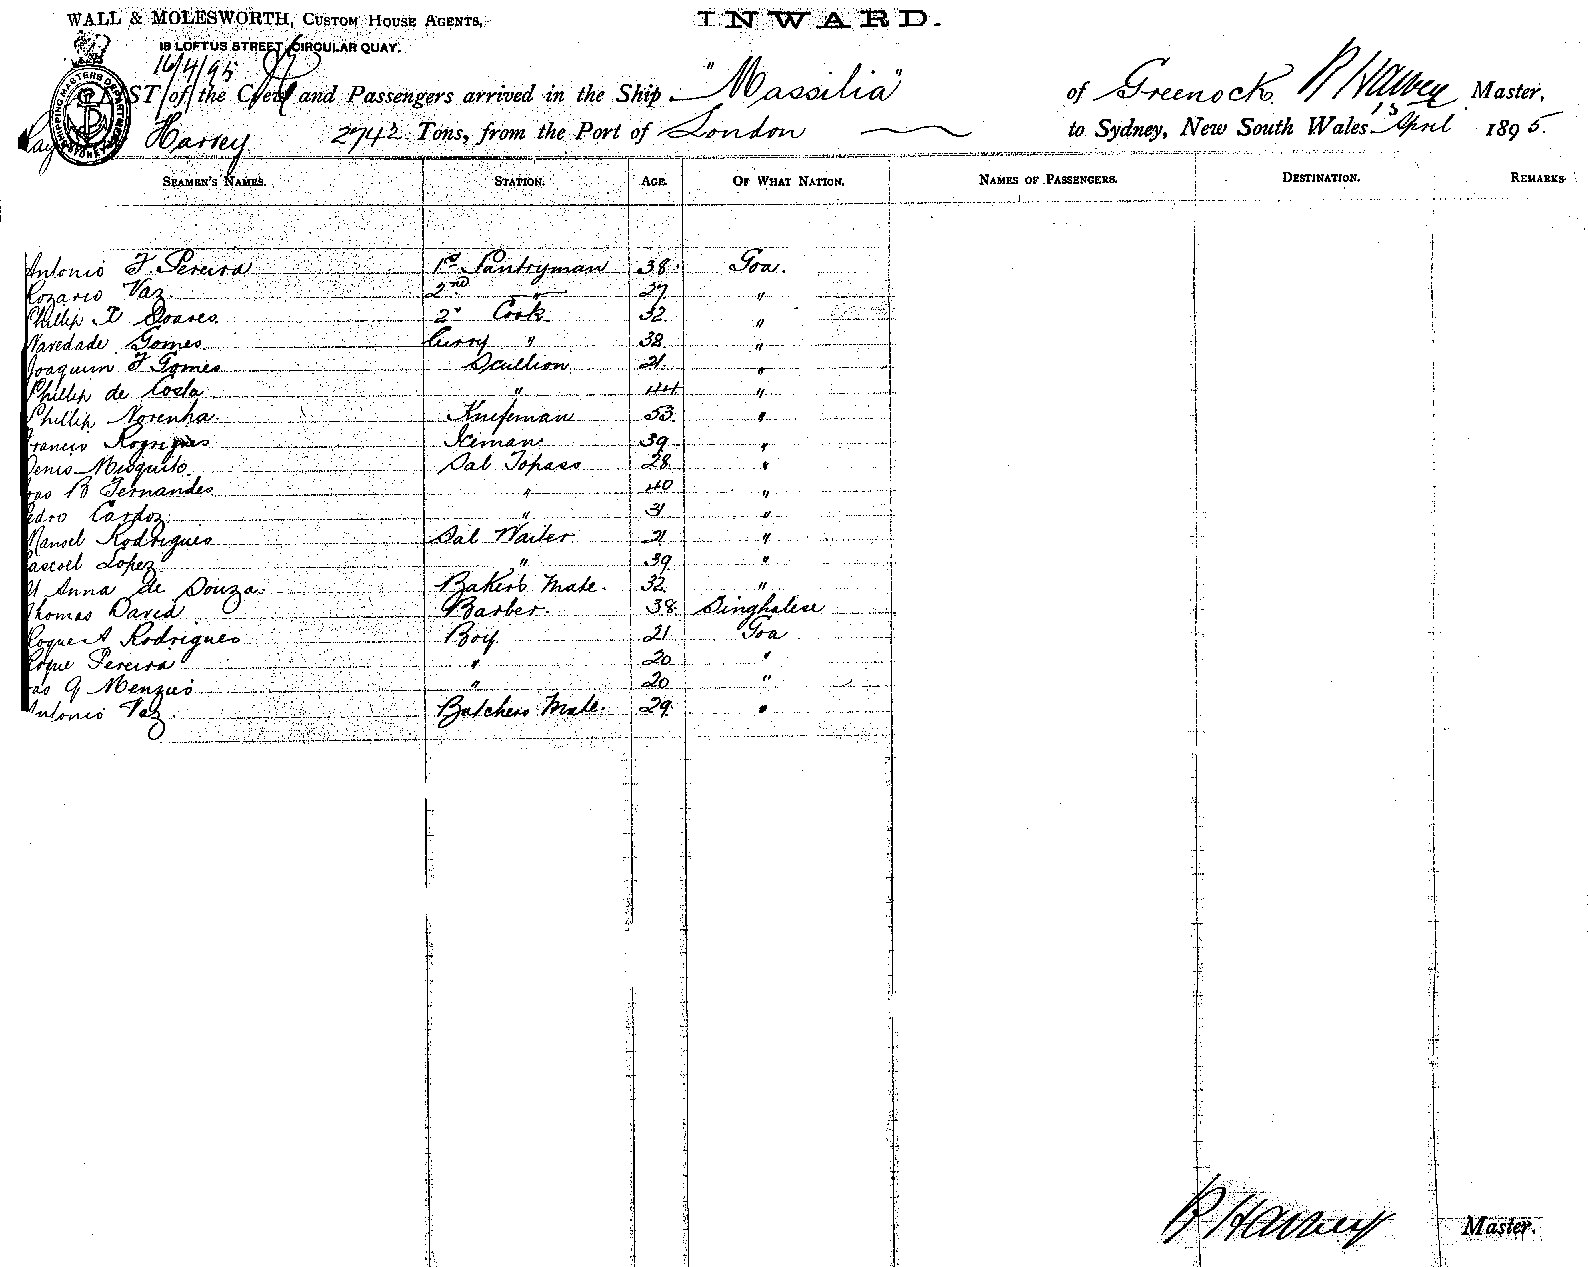 WALL & MOLESWORTH, CUSTOM HOUSE AGENTS,
18 LOFTUS STREET, CIRCULAR QUAY.
INWARD.
16/4/95
LIST of the Crew and Passengers arrived in the Ship "Massilia" of Greenock R Harvey Master,
Harvey 2742 Tons, from the Port of London to Sydney, New South Wales 15 April 1895.
SEAMEN'S NAMES. STATION. AGE. OF WHAT NATION. NAMES OF PASSENGERS. DESTINATION. REMARKS
Antonio F. Pereira 1st Pantryman 38 Goa.
Rozario Vaz 2nd " 27 "
Phillip X Soares 2nd Cook 32 "
Naredade Gomes Curry " 38 "
Joaquim F Gomes Scullion 21 "
Phillip de Costa " 44 "
Phillip Norenha Knifeman 53 "
Francis Rogrigues Iceman 39 "
Denis Misquito Sal Topass 28 "
oao B Fernandes " 40 "
edro Cardoz " 31 "
Manoel Rodrigues Sal Waiter 21 "
ascoel Lopez " 39 "
Anna de Souza Baker's Mate. 32 "
Thomas David Barber. 38 Singhalese
Roque A Rodrigues Boy 21 Goa
Roque Pereira " 20 "
oao Q Menzies " 20 "
Antonio Vaz Butchers Mate. 29 "
R Harvey Master.